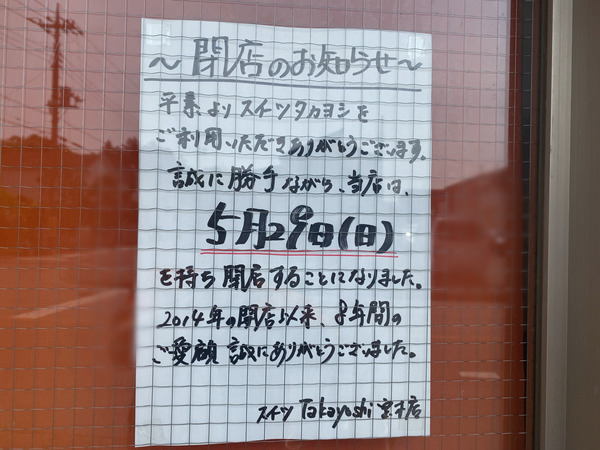 ～閉店のお知らせ～
平素よりスイーツタカヨシを
ご利用いただきありがとうございます。
誠に勝手ながら、当店は、
5月29日(日)
を持ち閉店することになりました。
2014年の開店以来、8年間の
ご愛顧誠にありがとうございました。
スイーツ Takayoshi 店